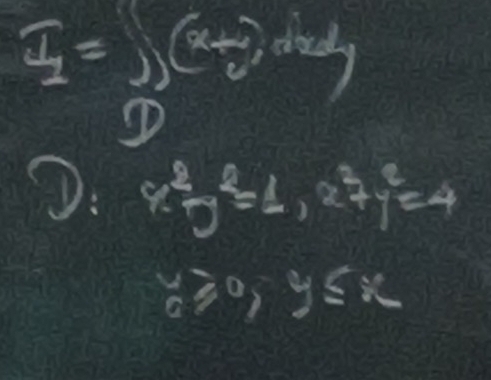 I₁ = ∬(x+y) dxdy
D
D: x²-y²=1, x²+y²=4
y≥0, y≤x